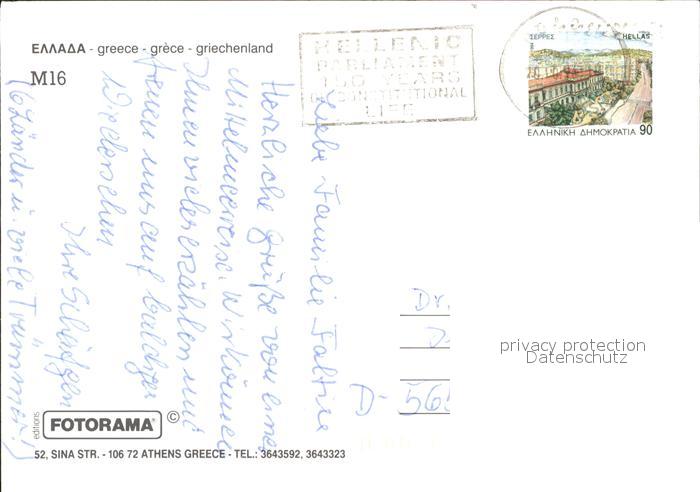 ΕΛΛΑΔΑ - greece - grèce - griechenland
M16
HELLENIC
PARLIAMENT
150 YEARS
OF CONSTITUTIONAL
LIFE
ΣΕΡΡΕΣ
HELLAS
ΕΛΛΗΝΙΚΗ ΔΗΜΟΚΡΑΤΙΑ 90
Liebe Familie
Herzliche Grüße von einer
Mittelmeerreise. Wir können
Ihnen vieles erzählen und
freuen uns auf baldiges
Wiedersehen
Ihre
(6 Länder u. viele Trümmer!)
Dr.
D- 565
privacy protection
Datenschutz
editions
FOTORAMA ©
52, SINA STR. - 106 72 ATHENS GREECE - TEL.: 3643592, 3643323